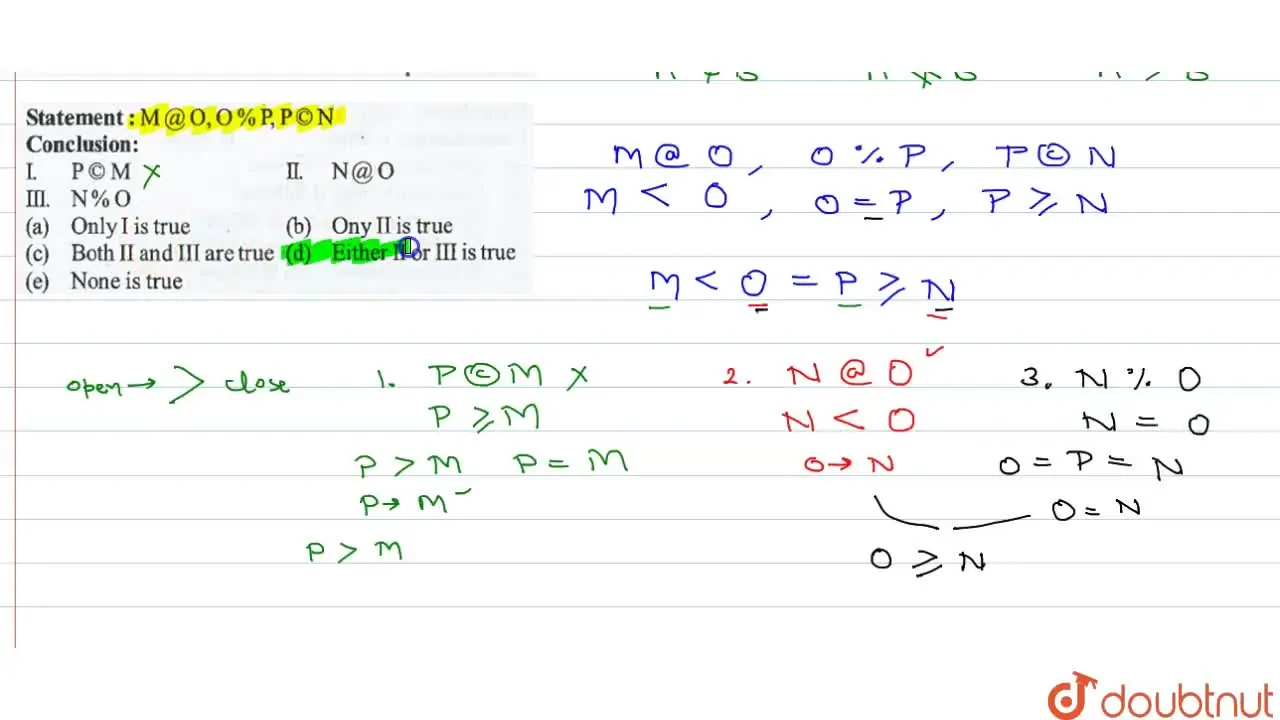 Statement : M @ O, O % P, P © N
Conclusion:
I. P © M X II. N @ O
III. N % O
(a) Only I is true (b) Ony II is true
(c) Both II and III are true (d) Either II or III is true
(e) None is true
M @ O , O % P , P © N
M < O , O = P , P ≥ N
M < O = P ≥ N
open → > close
1. P © M X
P ≥ M
P > M P = M
P → M
P > M
2. N @ O ✓
N < O
O → N
3. N % O
N = O
O = P = N
O = N
O ≥ N
doubtnut